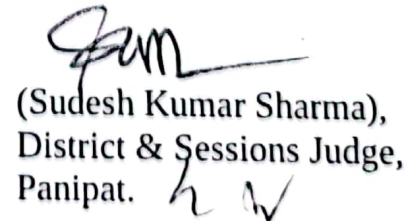 (Sudesh Kumar Sharma),
District & Sessions Judge,
Panipat.